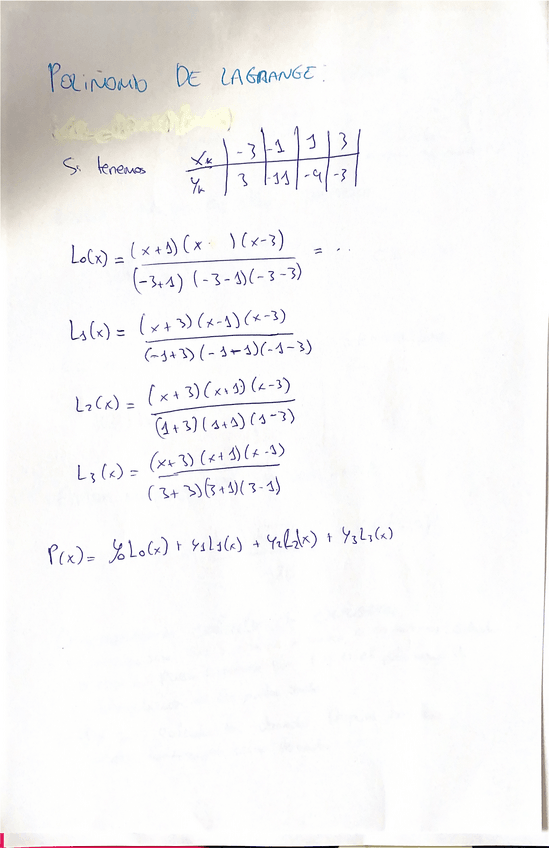 POLIÑOMIO DE LAGRANGE:
Si tenemos
Xk | -3 | -1 | 1 | 3 |
Yk | 3 | -11 | -4 | -3 |
L0(x) = (x+1)(x )(x-3) / (-3+1)(-3-1)(-3-3) = ..
L1(x) = (x+3)(x-1)(x-3) / (-1+3)(-1-1)(-1-3)
L2(x) = (x+3)(x+1)(x-3) / (1+3)(1+1)(1-3)
L3(x) = (x+3)(x+1)(x-1) / (3+3)(3+1)(3-1)
P(x) = y0L0(x) + y1L1(x) + y2L2(x) + y3L3(x)